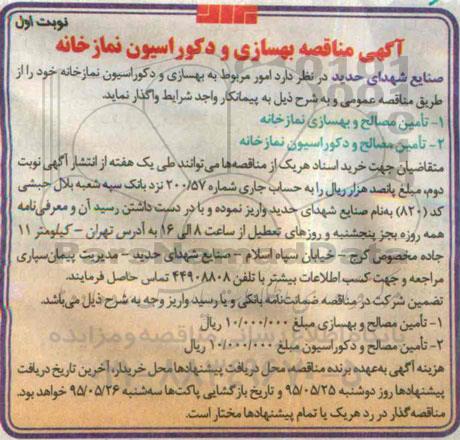 نوبت اول
آگهی مناقصه بهسازی و دکوراسیون نمازخانه
صنایع شهدای حدید در نظر دارد امور مربوط به بهسازی و دکوراسیون نمازخانه خود را از
طریق مناقصه عمومی و به شرح ذیل به پیمانکار واجد شرایط واگذار نماید.
۱- تأمین مصالح و بهسازی نمازخانه
۲- تأمین مصالح و دکوراسیون نمازخانه
متقاضیان جهت خرید اسناد هریک از مناقصه‌ها می‌توانند طی یک هفته از انتشار آگهی نوبت
دوم، مبلغ پانصد هزار ریال را به حساب جاری شماره ۲۰۰/۵۷ نزد بانک سپه شعبه بلال حبشی
کد (۸۲۰) به‌نام صنایع شهدای حدید واریز نموده و با در دست داشتن رسید آن و معرفی‌نامه
همه روزه بجز پنجشنبه و روزهای تعطیل از ساعت ۸ الی ۱۶ به آدرس تهران - کیلومتر ۱۱
جاده مخصوص کرج - خیابان سپاه اسلام - صنایع شهدای حدید - مدیریت پیمان‌سپاری
مراجعه و جهت کسب اطلاعات بیشتر با تلفن ۴۴۹۰۸۸۰۸ تماس حاصل فرمایند.
تضمین شرکت در مناقصه ضمانت‌نامه بانکی و یا رسید واریز وجه به شرح ذیل می‌باشد.
۱- تأمین مصالح و بهسازی مبلغ ۱۰/۰۰۰/۰۰۰ ریال
۲- تأمین مصالح و دکوراسیون مبلغ ۱۰/۰۰۰/۰۰۰ ریال
هزینه آگهی به‌عهده برنده مناقصه، محل دریافت پیشنهادها محل خریدار، آخرین تاریخ دریافت
پیشنهادها روز دوشنبه ۹۵/۰۵/۲۵ و تاریخ بازگشایی پاکت‌ها سه‌شنبه ۹۵/۰۵/۲۶ خواهد بود.
مناقصه‌گذار در رد هریک یا تمام پیشنهادها مختار است.